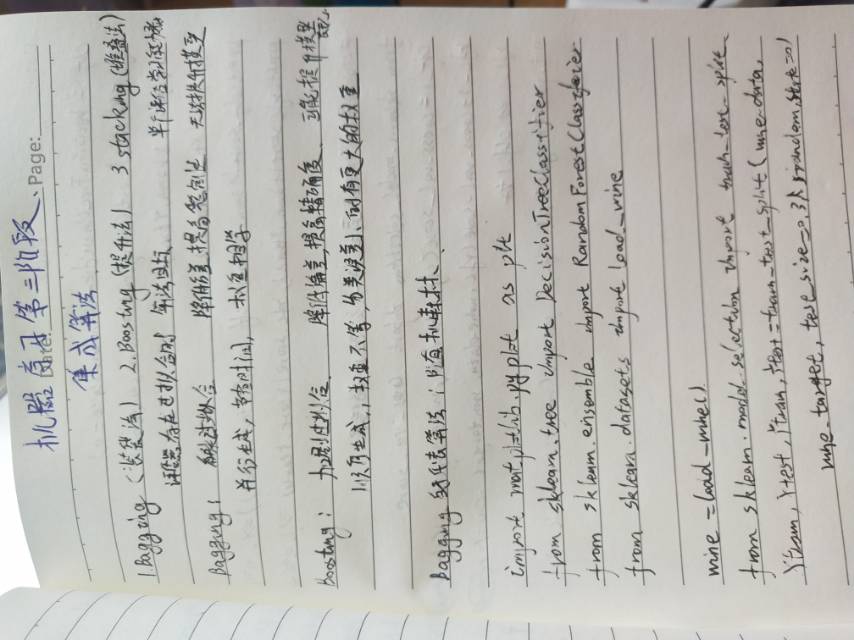 Page:
机器学习 第三阶段
集成算法
1 Bagging (装袋法) 2. Boosting (提升法) 3 stacking (堆叠法)
评估器存在过拟合时 算法目标
Bagging: 解决过拟合 降低方差 提高稳定性 无法提升模型
并行生成, 节省时间, 权重相等
Boosting: 加剧过拟合 降低偏差, 提高精确度 可能提升模型
以序生成, 权重不等, 分类误差小, 则有更大的权重
Bagging 代表算法: 随机森林.
import matplotlib.pyplot as plt
from sklearn.tree import DecisionTreeClassifier
from sklearn.ensemble import RandomForestClassifier
from sklearn.datasets import load_wine
wine = load_wine()
from sklearn.model_selection import train_test_split
Xtrain, Xtest, Ytrain, Ytest = train_test_split(wine.data,
wine.target, test_size=0.3, random_state=0)